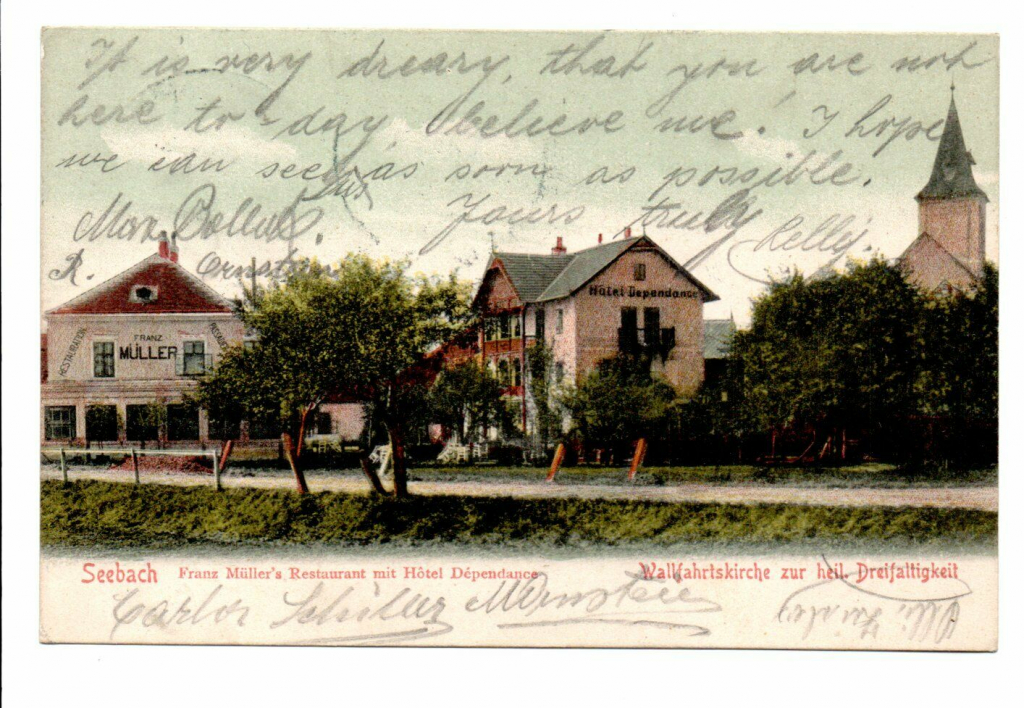 It is very dreary, that you are not
here to-day believe me! I hope
we can see us as soon as possible.
Yours truly Kelly.
Max
R. Ornstein
RESTAURATION
FRANZ
MÜLLER
Hôtel Dependance
Seebach Franz Müller's Restaurant mit Hôtel Dépendance Wallfahrtskirche zur heil. Dreifaltigkeit
Carlos Schüller